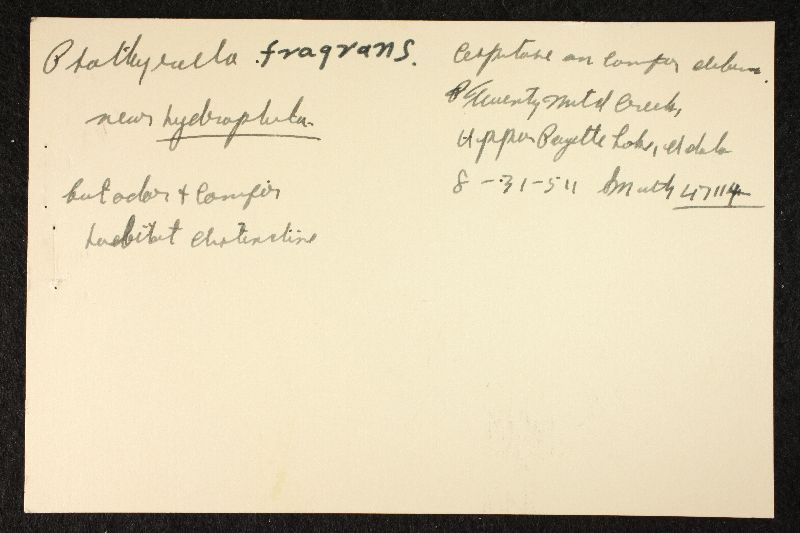 Psathyrella fragrans.
near hydrophila
but odor + conifer
habitat distinctive
Cespitose on conifer debris.
Twenty mile Creek,
Upper Payette Lake, Idaho
8-31-54 Smith 47114